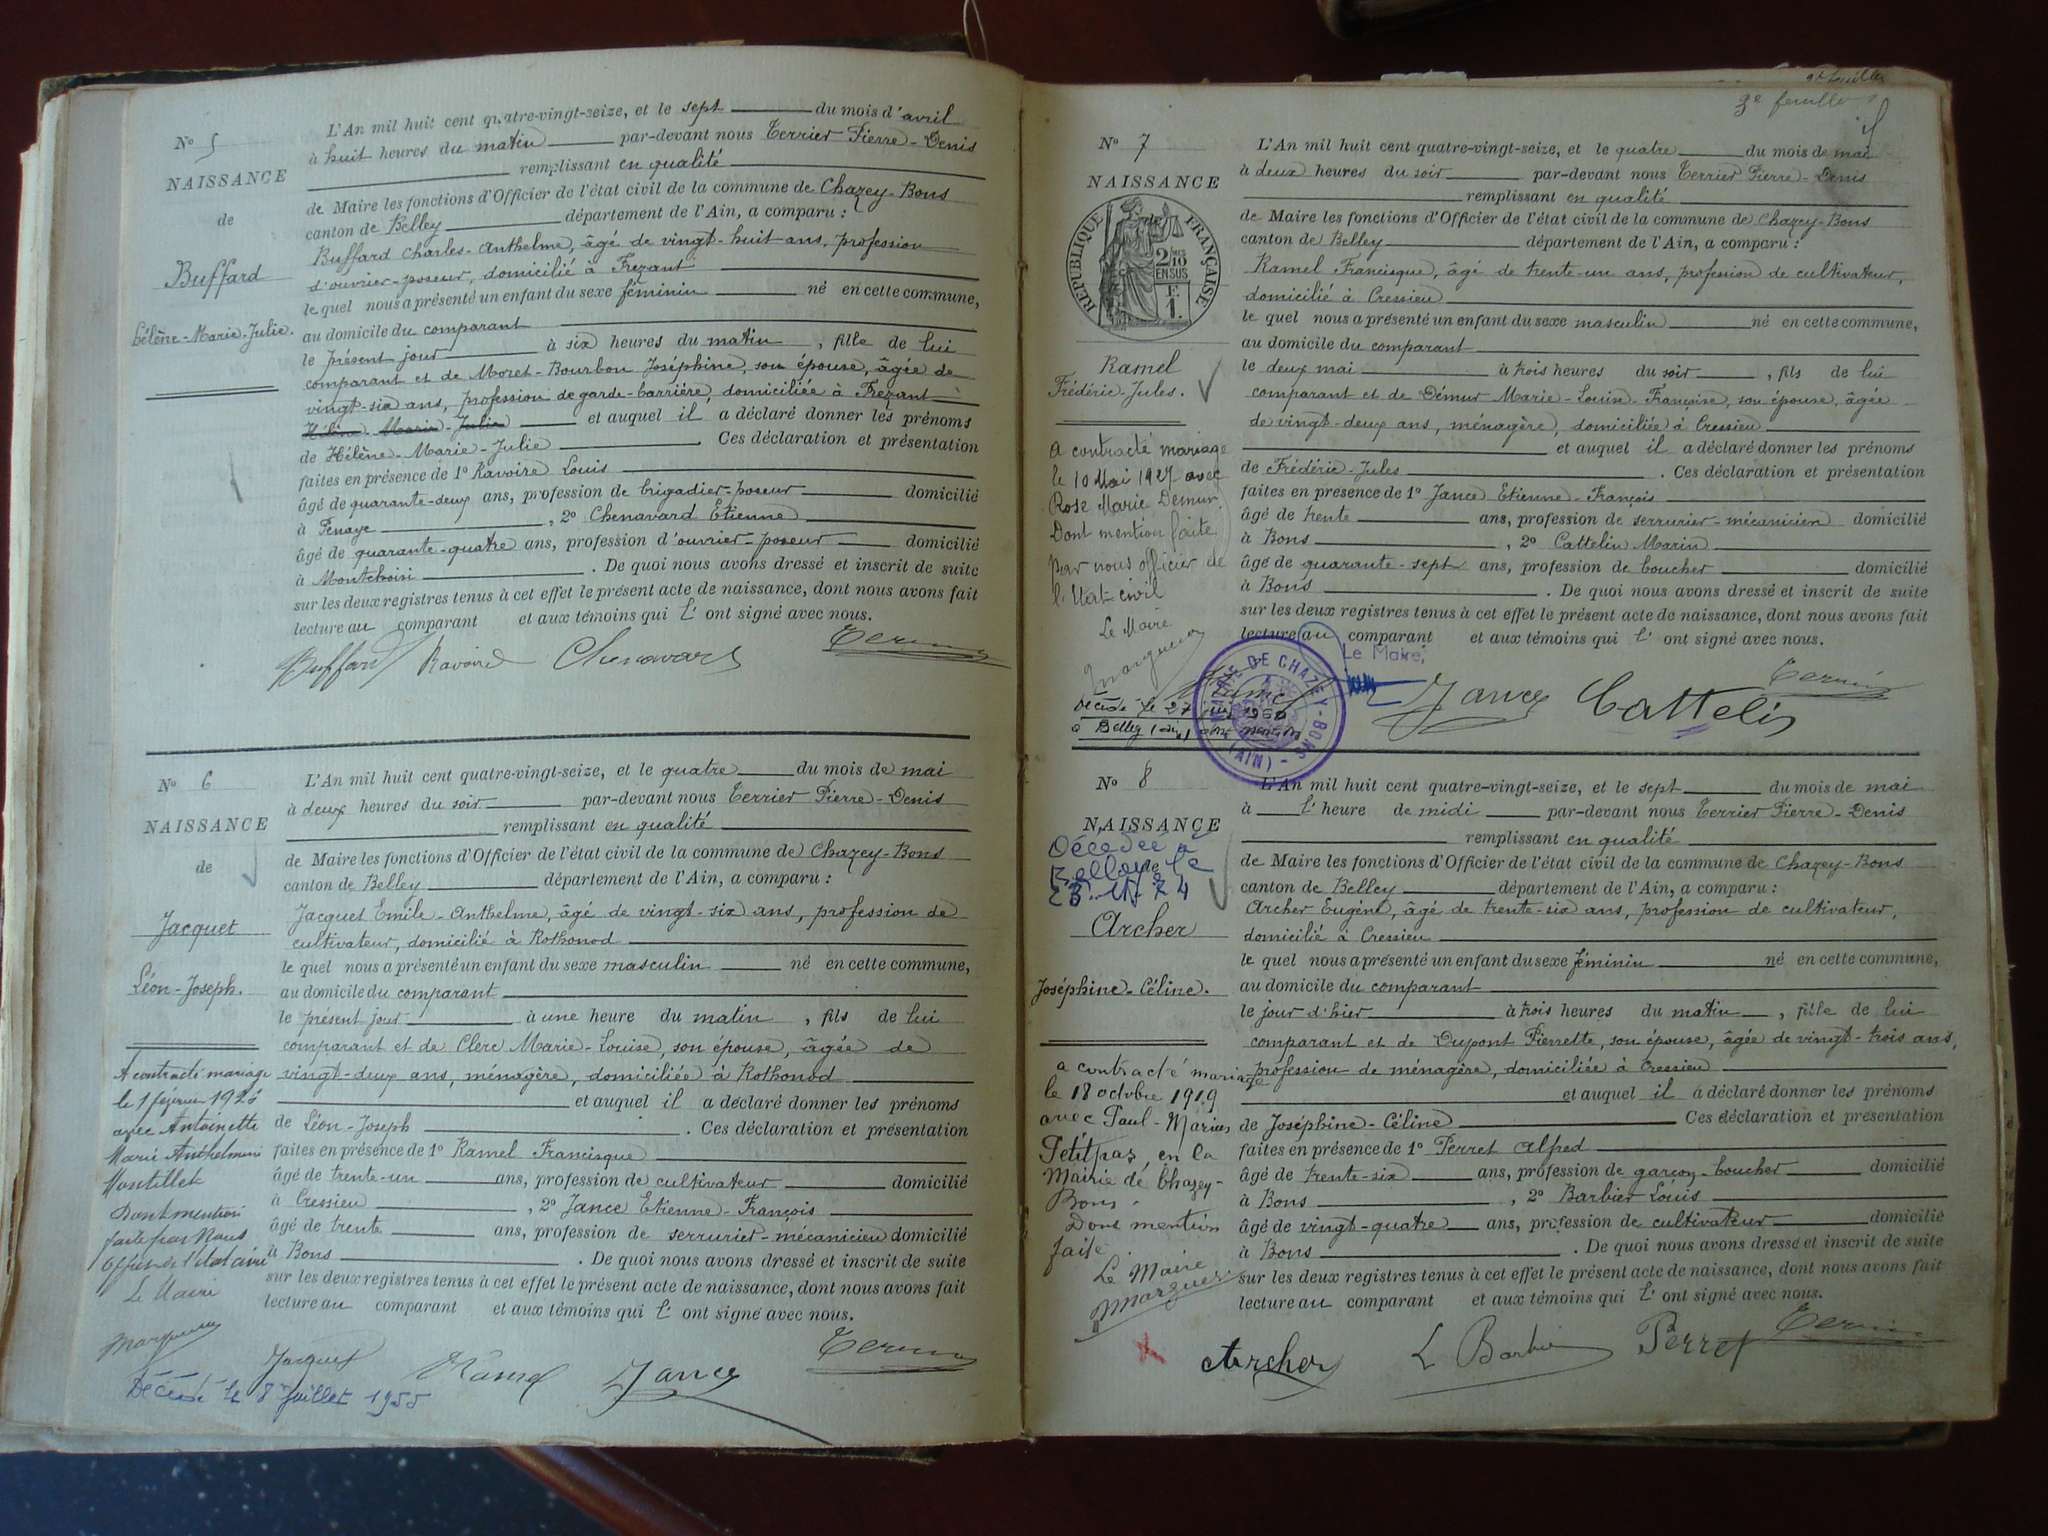 No 5
NAISSANCE
de
Buffard
Hélène-Marie-Julie.
L'An mil huit cent quatre-vingt-seize, et le sept du mois d'avril
à huit heures du matin par-devant nous Terrier Pierre-Denis
remplissant en qualité
de Maire les fonctions d'Officier de l'état civil de la commune de Chazey-Bons
canton de Belley département de l'Ain, a comparu :
Buffard Charles-Anthelme, âgé de vingt-huit ans, profession
d'ouvrier-poseur, domicilié à Frezant
le quel nous a présenté un enfant du sexe féminin né en cette commune,
au domicile du comparant
le présent jour à six heures du matin, fille de lui
comparant et de Moret-Bourbon Joséphine, son épouse, âgée de
vingt-six ans, profession de garde-barrière, domiciliée à Frezant
Hélène-Marie-Julie et auquel il a déclaré donner les prénoms
de Hélène-Marie-Julie Ces déclaration et présentation
faites en présence de 1o Ravoire Louis
âgé de quarante-deux ans, profession de brigadier-poseur domicilié
à Penaye, 2o Chenavard Etienne
âgé de quarante-quatre ans, profession d'ouvrier-poseur domicilié
à Montchoisi. De quoi nous avons dressé et inscrit de suite
sur les deux registres tenus à cet effet le présent acte de naissance, dont nous avons fait
lecture au comparant et aux témoins qui l' ont signé avec nous.
Buffard Ravoire Chenavard
No 6
NAISSANCE
de
Jacquet
Léon-Joseph.
A contracté mariage
avec Antoinette
Marie
Montillet
Dont mention
faite par Nous
Officier de l'état civil
Le Maire
L'An mil huit cent quatre-vingt-seize, et le quatre du mois de mai
à deux heures du soir par-devant nous Terrier Pierre-Denis
remplissant en qualité
de Maire les fonctions d'Officier de l'état civil de la commune de Chazey-Bons
canton de Belley département de l'Ain, a comparu :
Jacquet Emile-Anthelme, âgé de vingt-six ans, profession de
cultivateur, domicilié à Rothonod
le quel nous a présenté un enfant du sexe masculin né en cette commune,
au domicile du comparant
le présent jour à une heure du matin, fils de lui
comparant et de Clerc Marie-Louise, son épouse, âgée de
vingt-deux ans, ménagère, domiciliée à Rothonod
et auquel il a déclaré donner les prénoms
de Léon-Joseph. Ces déclaration et présentation
faites en présence de 1o Ramel Francisque
âgé de trente-un ans, profession de cultivateur domicilié
à Cressieu, 2o Jance Etienne-François
âgé de trente ans, profession de serrurier-mécanicien domicilié
à Bons. De quoi nous avons dressé et inscrit de suite
sur les deux registres tenus à cet effet le présent acte de naissance, dont nous avons fait
lecture au comparant et aux témoins qui l' ont signé avec nous.
Jacquet Ramel Jance
Décédé le 8 Juillet 1955
3e feuille
No 7
NAISSANCE
RÉPUBLIQUE FRANÇAISE
2/10 EN SUS
F. 1.
Ramel
Frédéric-Jules.
A contracté mariage
le 10 Mai 1927 avec
Rose Marie Demur.
Dont mention faite
par nous officier de
l'Etat civil
Le Maire
Décédé le 27
à Belley
L'An mil huit cent quatre-vingt-seize, et le quatre du mois de mai
à deux heures du soir par-devant nous Terrier Pierre-Denis
remplissant en qualité
de Maire les fonctions d'Officier de l'état civil de la commune de Chazey-Bons
canton de Belley département de l'Ain, a comparu :
Ramel Francisque, âgé de trente-un ans, profession de cultivateur,
domicilié à Cressieu
le quel nous a présenté un enfant du sexe masculin né en cette commune,
au domicile du comparant
le deux mai à trois heures du soir, fils de lui
comparant et de Démur Marie-Louise-Françoise, son épouse, âgée
de vingt-deux ans, ménagère, domiciliée à Cressieu
et auquel il a déclaré donner les prénoms
de Frédéric-Jules. Ces déclaration et présentation
faites en présence de 1o Jance Etienne-François
âgé de trente ans, profession de serrurier-mécanicien domicilié
à Bons, 2o Cattelin Marin
âgé de quarante-sept ans, profession de boucher domicilié
à Bons. De quoi nous avons dressé et inscrit de suite
sur les deux registres tenus à cet effet le présent acte de naissance, dont nous avons fait
lecture au comparant et aux témoins qui l' ont signé avec nous.
Le Maire,
MAIRIE DE CHAZEY-BONS (AIN)
Jance Cattelin
No 8
NAISSANCE
de
Décédée à
Belley le
Archer
Joséphine-Céline.
a contracté mariage
le 18 octobre 1919
avec Paul-Marius
Petitpas, en la
Mairie de Chazey-
Bons.
Dont mention
faite.
Le Maire
L'An mil huit cent quatre-vingt-seize, et le sept du mois de mai
à l' heure de midi par-devant nous Terrier Pierre-Denis
remplissant en qualité
de Maire les fonctions d'Officier de l'état civil de la commune de Chazey-Bons
canton de Belley département de l'Ain, a comparu :
Archer Eugène, âgé de trente-six ans, profession de cultivateur,
domicilié à Cressieu
le quel nous a présenté un enfant du sexe féminin né en cette commune,
au domicile du comparant
le jour d'hier à trois heures du matin, fille de lui
comparant et de Dupont Pierrette, son épouse, âgée de vingt-trois ans,
profession de ménagère, domiciliée à Cressieu
et auquel il a déclaré donner les prénoms
de Joséphine-Céline Ces déclaration et présentation
faites en présence de 1o Perret Alfred
âgé de trente-six ans, profession de garçon-boucher domicilié
à Bons, 2o Barbier Louis
âgé de vingt-quatre ans, profession de cultivateur domicilié
à Bons. De quoi nous avons dressé et inscrit de suite
sur les deux registres tenus à cet effet le présent acte de naissance, dont nous avons fait
lecture au comparant et aux témoins qui l' ont signé avec nous.
Archer L Barbier Perret